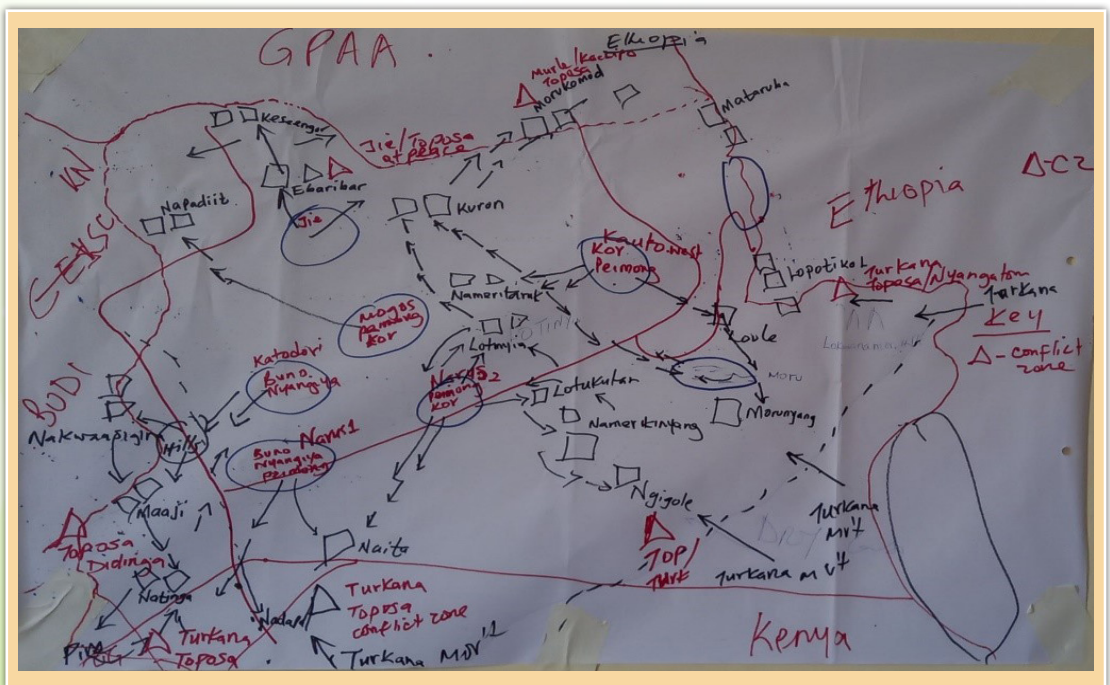 GPAA.
Ethiopia
Murle/Kachipo
Toposa
Morukomod
Mataruba
Keseengor
Jie/Toposa
at peace
KN
Ebaribar
Napadiit
Jie
Kuron
Ethiopia
Δ-CZ
Kauto west
Kor
Peimong
Lopotikol
Turkana
Toposa/Nyangatom
Turkana
Key
Δ-conflict
zone
Nameritarak
Mogos
Pamong
Kor
Lotinyia
Loole
MORU
Katodori
Buno.
Nyangiya
Narus2
Peimong
Kor
Lotukutan
Morunyang
BUDI
Hills
Narus1
Buno
Nyangiya
Namerikinyang
Ngigole
Maaji
Turkana
mv't
Toposa
Didinga
Naita
TOP/
Turk
Turkana mv't
Natinga
Nadapal
Turkana
Toposa
conflict zone
Turkana
Toposa
Turkana Mov't
Kenya